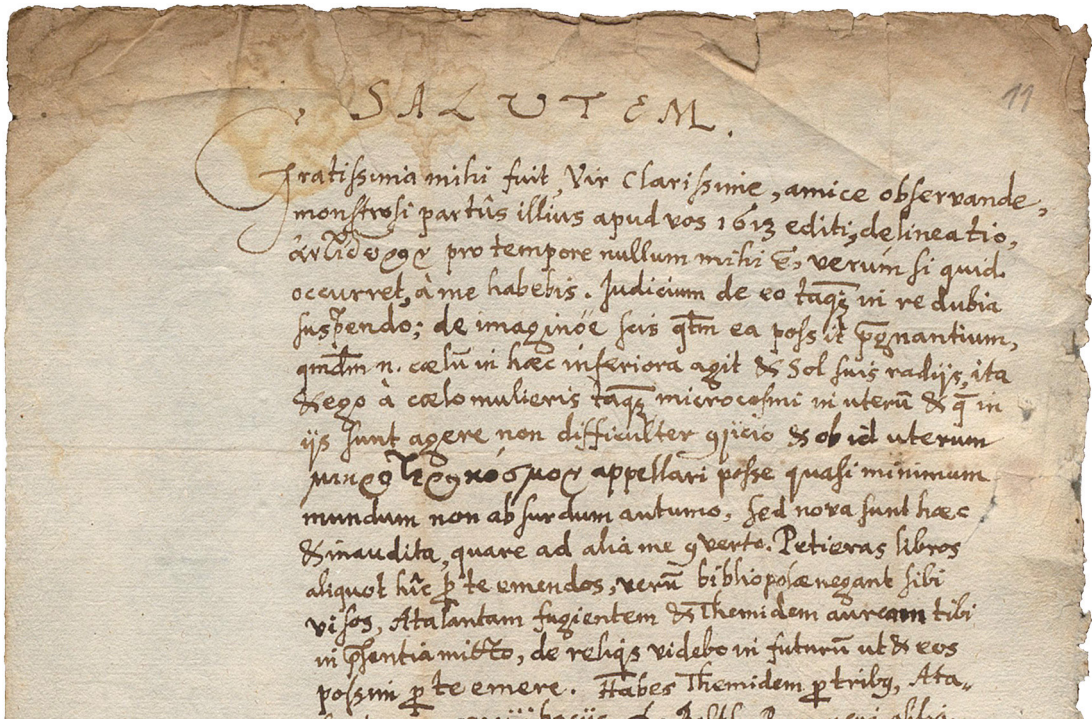 11
SALUTEM.
Gratissima mihi fuit, Vir Clarissime, amice observande,
monstrosi partûs illius apud vos 1613 editi, delineatio,
ἀντίδωρον pro tempore nullum mihi ẽ, verum si quid
occurret, à me habebis. Judicium de eo tãq̃ in re dubia
suspendo; de imaginõe scis qtm ea possit p̃gnantium,
qmdm n. cælũ in hæc inferiora agit & Sol suis radijs, ita
& ego à cælo mulieris tãq̃ microcosmi in uterũ & q̃ in
ijs sunt agere non difficulter ꝯijcio & ob id uterum
μικρότερον κόσμον appellari posse quasi minimum
mundum non absurdum autumo, sed nova sunt hæc
& inaudita, quare ad alia me ꝯverto. Petieras libros
aliquot hîc ꝑ te emendos, verũ bibliopolæ negant sibi
visos, Atalantam fugientem & Themidem auream tibi
in p̃sentia mitto, de reliqs videbo in futurũ ut & eos
possim ꝑ te emere. Habes Themidem ꝑ tribq, Ata-